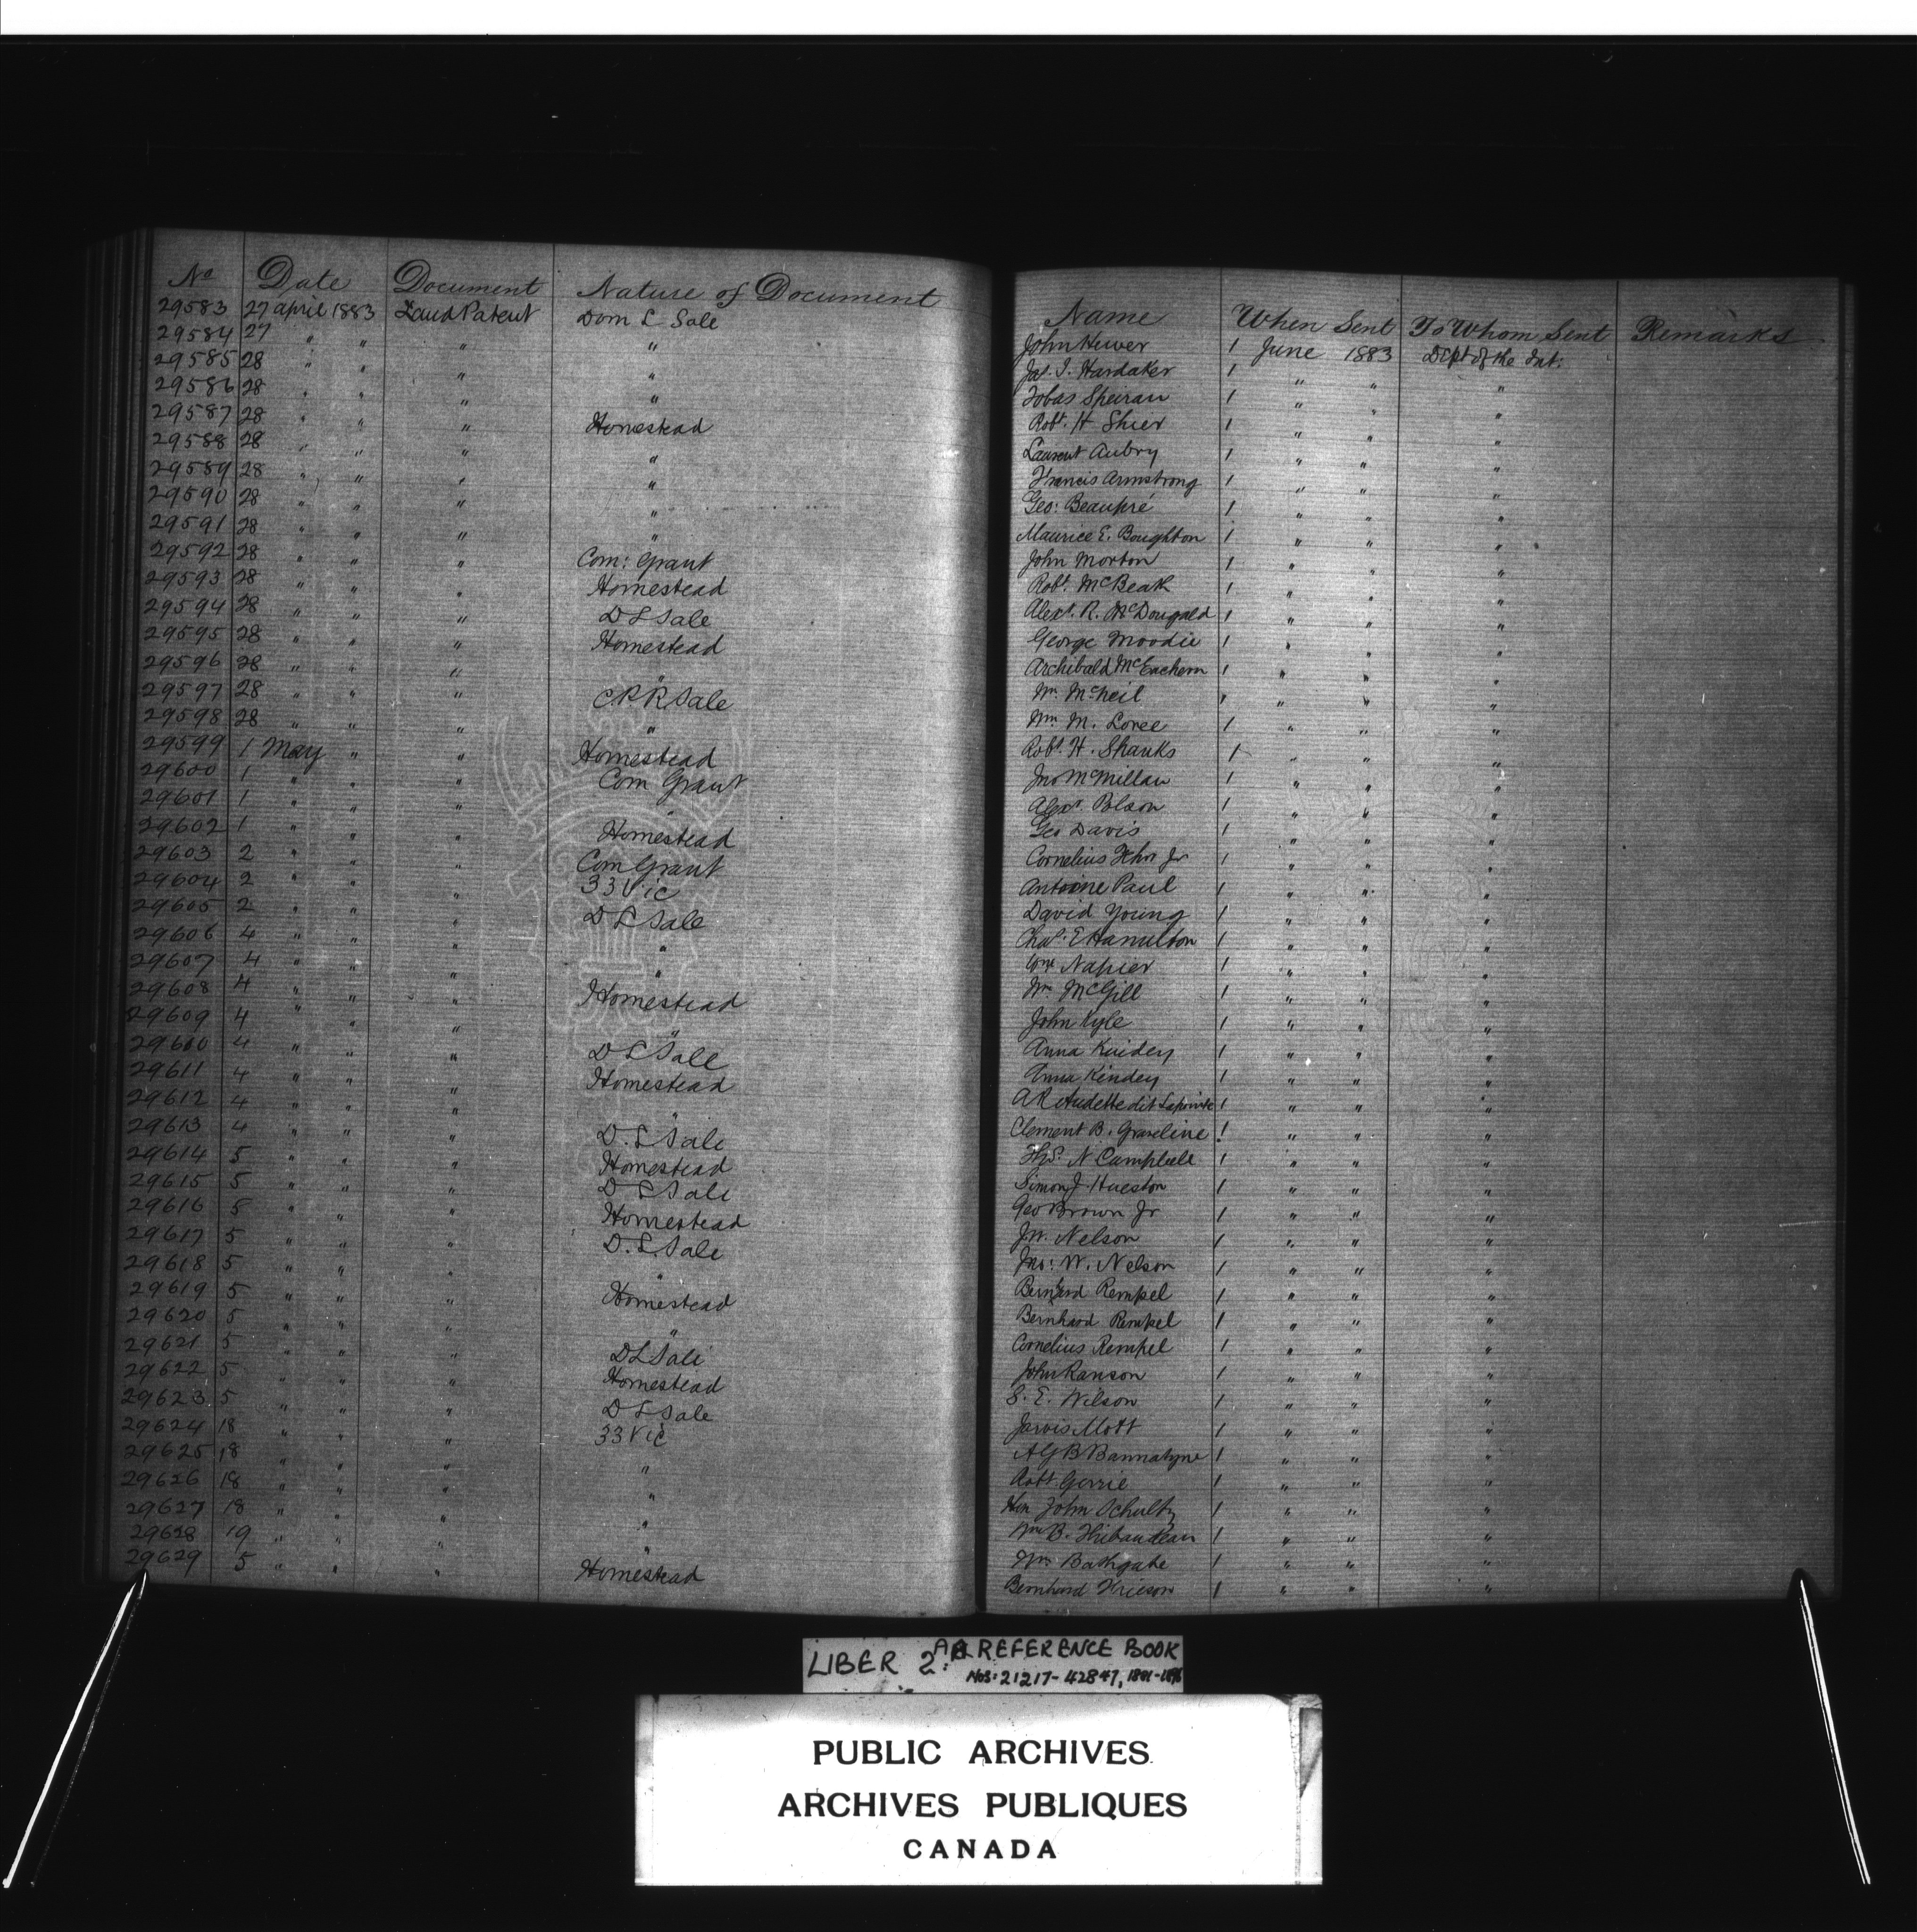 No Date Document Nature of Document
29583 27 april 1883 Land Patent Dom L Sale
29584 27 " " " "
29585 28 " " " "
29586 28 " " " "
29587 28 " " " Homestead
29588 28 " " " "
29589 28 " " " "
29590 28 " " " "
29591 28 " " " "
29592 28 " " " Com: Grant
29593 28 " " " Homestead
29594 28 " " " D L Sale
29595 28 " " " Homestead
29596 28 " " " "
29597 28 " " " C.P.R Sale
29598 28 " " " "
29599 1 May " " Homestead
29600 1 " " " Com Grant
29601 1 " " " "
29602 1 " " " Homestead
29603 2 " " " Com Grant
29604 2 " " " 33 Vic
29605 2 " " " D L Sale
29606 4 " " " "
29607 4 " " " "
29608 4 " " " Homestead
29609 4 " " " "
29610 4 " " " D L Sale
29611 4 " " " Homestead
29612 4 " " " "
29613 4 " " " D. L Sale
29614 5 " " " Homestead
29615 5 " " " D L Sale
29616 5 " " " Homestead
29617 5 " " " D. L. Sale
29618 5 " " " "
29619 5 " " " Homestead
29620 5 " " " "
29621 5 " " " D L Sale
29622 5 " " " Homestead
29623 5 " " " D L Sale
29624 18 " " " 33 Vic
29625 18 " " " "
29626 18 " " " "
29627 18 " " " "
29628 19 " " " "
29629 5 " " " Homestead
Name When Sent To Whom Sent Remarks
John Hewer 1 June 1883 Dept of the Int.
Jas. I. Hardaker 1 " " "
Tobas Speiran 1 " " "
Robt. H Shier 1 " " "
Laurent Aubry 1 " " "
Francis Armstrong 1 " " "
Geo: Beaupré 1 " " "
Maurice E. Boughton 1 " " "
John Morton 1 " " "
Robt. McBeath 1 " " "
Alexr. R. McDougald 1 " " "
George Moodie 1 " " "
Archibald McEachern 1 " " "
Wm. McNeil 1 " " "
Wm. M. Loree 1 " " "
Robt. H. Shanks 1 " " "
Jno McMillan 1 " " "
Alexr. Polson 1 " " "
Geo Davis 1 " " "
Cornelius Fehr Jr 1 " " "
Antoine Paul 1 " " "
David Young 1 " " "
Chas. E Hamilton 1 " " "
Wm Napier 1 " " "
Wm McGill 1 " " "
John Kyle 1 " " "
Anna Kindey 1 " " "
Anna Kindey 1 " " "
A R Audette dit Lapointe 1 " " "
Clement B. Graveline 1 " " "
Ths. N Campbell 1 " " "
Simon J Hueston 1 " " "
Geo Brown Jr 1 " " "
J.W. Nelson 1 " " "
Jno: W. Nelson 1 " " "
Bernhard Rempel 1 " " "
Bernhard Rempel 1 " " "
Cornelius Rempel 1 " " "
John Ranson 1 " " "
S. E. Wilson 1 " " "
Jarvis Mott 1 " " "
A G B Bannatyne 1 " " "
Robt Gerrie 1 " " "
Hon John Schultz 1 " " "
Wm B. Thibaudeau 1 " " "
Wm Bathgate 1 " " "
Bernhard Friesen 1 " " "
LIBER 2: REFERENCE BOOK
NOS: 21217-42847,
PUBLIC ARCHIVES
ARCHIVES PUBLIQUES
CANADA